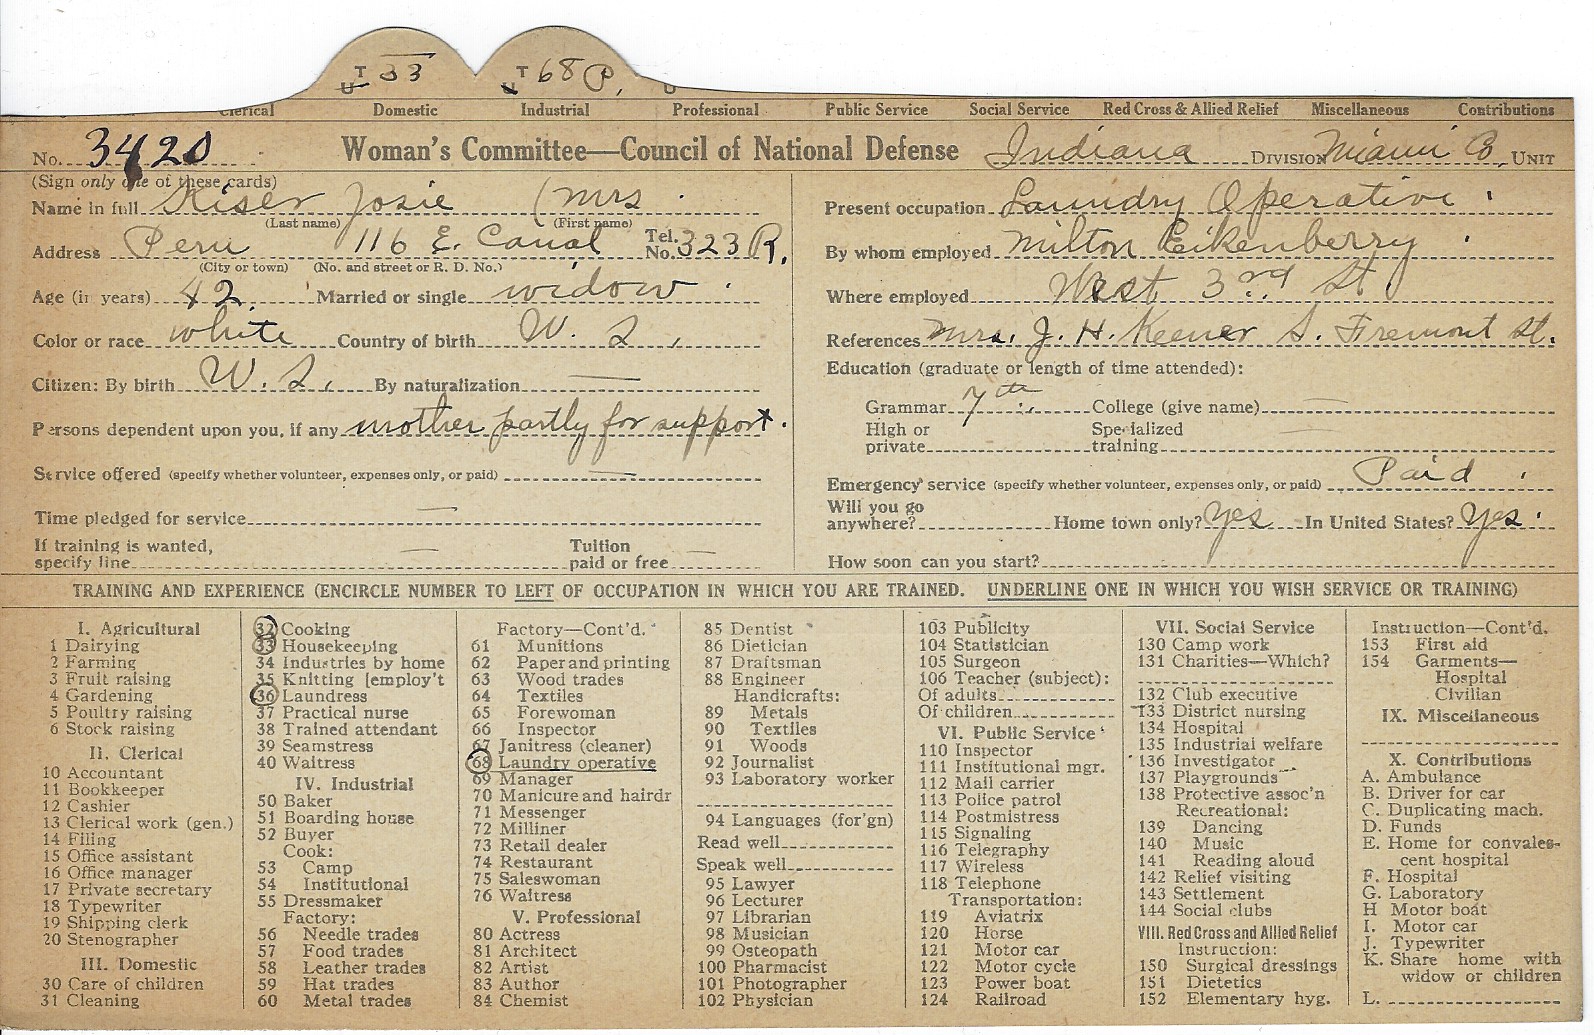 T 33 T 68 P.
U U U
Clerical Domestic Industrial Professional Public Service Social Service Red Cross & Allied Relief Miscellaneous Contributions
No. 3420 Woman's Committee—Council of National Defense Indiana DIVISION Miami Co. UNIT
(Sign only one of these cards)
Name in full Kiser Josie (Mrs
(Last name) (First name)
Address Peru 116 E. Canal Tel. No. 323 R.
(City or town) (No. and street or R. D. No.)
Age (in years) 42. Married or single widow
Color or race white Country of birth U. S.
Citizen: By birth U. S. By naturalization —
Persons dependent upon you, if any mother partly for support.
Service offered (specify whether volunteer, expenses only, or paid) —
Time pledged for service —
If training is wanted, specify line — Tuition paid or free —
Present occupation Laundry Operative
By whom employed Milton Eikenberry
Where employed West 3rd St
References Mrs. J. H. Keener S. Fremont St.
Education (graduate or length of time attended):
Grammar 7th College (give name) —
High or private Specialized training —
Emergency service (specify whether volunteer, expenses only, or paid) Paid
Will you go anywhere? Home town only? Yes In United States? Yes
How soon can you start?
TRAINING AND EXPERIENCE (ENCIRCLE NUMBER TO LEFT OF OCCUPATION IN WHICH YOU ARE TRAINED. UNDERLINE ONE IN WHICH YOU WISH SERVICE OR TRAINING)
I. Agricultural
1 Dairying
2 Farming
3 Fruit raising
4 Gardening
5 Poultry raising
6 Stock raising
II. Clerical
10 Accountant
11 Bookkeeper
12 Cashier
13 Clerical work (gen.)
14 Filing
15 Office assistant
16 Office manager
17 Private secretary
18 Typewriter
19 Shipping clerk
20 Stenographer
III. Domestic
30 Care of children
31 Cleaning
32 Cooking
33 Housekeeping
34 Industries by home
35 Knitting [employ't
36 Laundress
37 Practical nurse
38 Trained attendant
39 Seamstress
40 Waitress
IV. Industrial
50 Baker
51 Boarding house
52 Buyer
Cook:
53 Camp
54 Institutional
55 Dressmaker
Factory:
56 Needle trades
57 Food trades
58 Leather trades
59 Hat trades
60 Metal trades
Factory—Cont'd.
61 Munitions
62 Paper and printing
63 Wood trades
64 Textiles
65 Forewoman
66 Inspector
67 Janitress (cleaner)
68 Laundry operative
69 Manager
70 Manicure and hairdr
71 Messenger
72 Milliner
73 Retail dealer
74 Restaurant
75 Saleswoman
76 Waitress
V. Professional
80 Actress
81 Architect
82 Artist
83 Author
84 Chemist
85 Dentist
86 Dietician
87 Draftsman
88 Engineer
Handicrafts:
89 Metals
90 Textiles
91 Woods
92 Journalist
93 Laboratory worker
94 Languages (for'gn)
Read well
Speak well
95 Lawyer
96 Lecturer
97 Librarian
98 Musician
99 Osteopath
100 Pharmacist
101 Photographer
102 Physician
103 Publicity
104 Statistician
105 Surgeon
106 Teacher (subject):
Of adults
Of children
VI. Public Service
110 Inspector
111 Institutional mgr.
112 Mail carrier
113 Police patrol
114 Postmistress
115 Signaling
116 Telegraphy
117 Wireless
118 Telephone
Transportation:
119 Aviatrix
120 Horse
121 Motor car
122 Motor cycle
123 Power boat
124 Railroad
VII. Social Service
130 Camp work
131 Charities—Which?
132 Club executive
133 District nursing
134 Hospital
135 Industrial welfare
136 Investigator
137 Playgrounds
138 Protective assoc'n
Recreational:
139 Dancing
140 Music
141 Reading aloud
142 Relief visiting
143 Settlement
144 Social clubs
VIII. Red Cross and Allied Relief
Instruction:
150 Surgical dressings
151 Dietetics
152 Elementary hyg.
Instruction—Cont'd.
153 First aid
154 Garments—
Hospital
Civilian
IX. Miscellaneous
X. Contributions
A. Ambulance
B. Driver for car
C. Duplicating mach.
D. Funds
E. Home for convales-
cent hospital
F. Hospital
G. Laboratory
H Motor boat
I. Motor car
J. Typewriter
K. Share home with
widow or children
L.